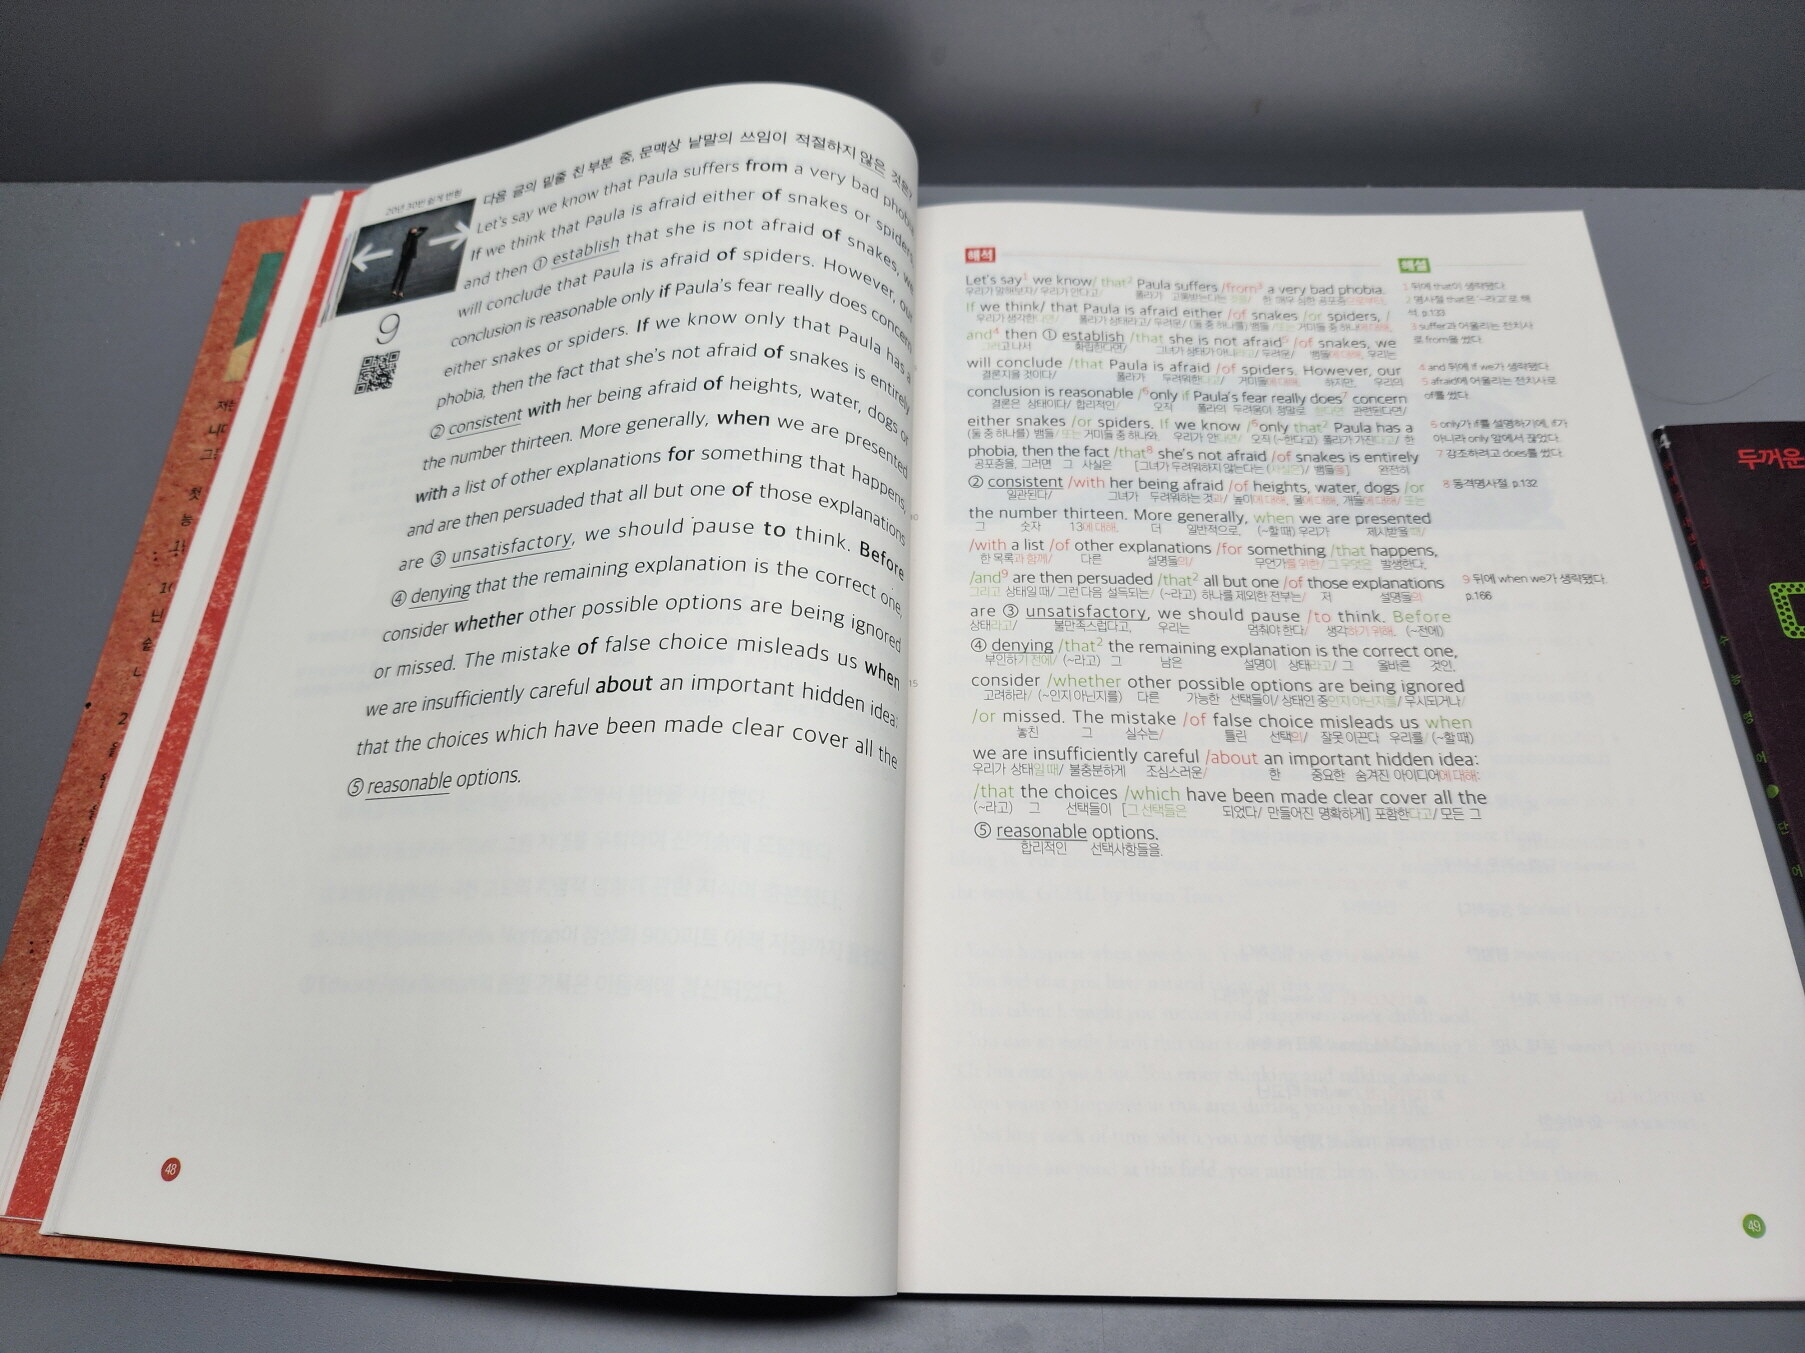 20년 30번 쉽게 변형
다음 글의 밑줄 친 부분 중, 문맥상 낱말의 쓰임이 적절하지 않은 것은?
9
Let's say we know that Paula suffers from a very bad phobia.
If we think that Paula is afraid either of snakes or spiders,
and then ① establish that she is not afraid of snakes, we
will conclude that Paula is afraid of spiders. However, our
conclusion is reasonable only if Paula's fear really does concern
either snakes or spiders. If we know only that Paula has a
phobia, then the fact that she's not afraid of snakes is entirely
② consistent with her being afraid of heights, water, dogs or
the number thirteen. More generally, when we are presented
with a list of other explanations for something that happens,
and are then persuaded that all but one of those explanations
are ③ unsatisfactory, we should pause to think. Before
④ denying that the remaining explanation is the correct one,
consider whether other possible options are being ignored
or missed. The mistake of false choice misleads us when
we are insufficiently careful about an important hidden idea:
that the choices which have been made clear cover all the
⑤ reasonable options.
10
15
48
해석
Let's say¹ we know/ that² Paula suffers /from³ a very bad phobia.
우리가 말해보자/ 우리가 안다고/ 폴라가 고통받는다는 것을/ 한 매우 심한 공포증으로부터.
If we think/ that Paula is afraid either /of snakes /or spiders, /
우리가 생각한다면/ 폴라가 상태라고/ 두려운/ (둘 중 하나를) 뱀들 /또는 거미들 중 하나에 대해,
and⁴ then ① establish /that she is not afraid⁵ /of snakes, we
그리고 나서 확립한다면/ 그녀가 상태가 아니라고/ 두려운/ 뱀들에 대해, 우리는
will conclude /that Paula is afraid /of spiders. However, our
결론지을 것이다/ 폴라가 두려워한다고/ 거미들에 대해. 하지만, 우리의
conclusion is reasonable /⁶only if Paula's fear really does⁷ concern
결론은 상태이다/ 합리적인/ 오직 폴라의 두려움이 정말로 한다면 관련된다면/
either snakes /or spiders. If we know /⁶only that² Paula has a
(둘 중 하나를) 뱀들/ 또는 거미들 중 하나와. 우리가 안다면/ 오직 (~한다고) 폴라가 가진다고/ 한
phobia, then the fact /that⁸ she's not afraid /of snakes is entirely
공포증을, 그러면 그 사실은 [그녀가 두려워하지 않는다는 (사실은)/ 뱀들을] 완전히
② consistent /with her being afraid /of heights, water, dogs /or
일관된다/ 그녀가 두려워하는 것과/ 높이에 대해, 물에 대해, 개들에 대해/ 또는
the number thirteen. More generally, when we are presented
그 숫자 13에 대해. 더 일반적으로, (~할 때) 우리가 제시받을 때/
/with a list /of other explanations /for something /that happens,
한 목록과 함께/ 다른 설명들의/ 무언가를 위한/ 그 무엇은 발생한다,
/and⁹ are then persuaded /that² all but one /of those explanations
그리고 상태일 때/ 그런 다음 설득되는/ (~라고) 하나를 제외한 전부는/ 저 설명들의
are ③ unsatisfactory, we should pause /to think. Before
상태라고/ 불만족스럽다고, 우리는 멈춰야 한다/ 생각하기 위해. (~전에)
④ denying /that² the remaining explanation is the correct one,
부인하기 전에/ (~라고) 그 남은 설명이 상태라고/ 그 올바른 것인,
consider /whether other possible options are being ignored
고려하라/ (~인지 아닌지를) 다른 가능한 선택들이/ 상태인 중인지 아닌지를/ 무시되거나/
/or missed. The mistake /of false choice misleads us when
놓친 그 실수는/ 틀린 선택의/ 잘못 이끈다 우리를/ (~할 때)
we are insufficiently careful /about an important hidden idea:
우리가 상태일 때/ 불충분하게 조심스러운/ 한 중요한 숨겨진 아이디어에 대해:
/that the choices /which have been made clear cover all the
(~라고) 그 선택들이 [그 선택들은 되었다/ 만들어진 명확하게] 포함한다고/ 모든 그
⑤ reasonable options.
합리적인 선택사항들을.
해설
1 뒤에 that이 생략됐다.
2 명사절 that은 '~라고'로 해
석, p.133
3 suffer과 어울리는 전치사
로 from을 썼다.
4 and 뒤에 if we가 생략됐다.
5 afraid에 어울리는 전치사로
of를 썼다.
6 only가 if를 설명하기에, if가
아니라 only 앞에서 끊었다.
7 강조하려고 does를 썼다.
8 동격명사절 p.132
9 뒤에 when we가 생략됐다.
p.166
49
두꺼운